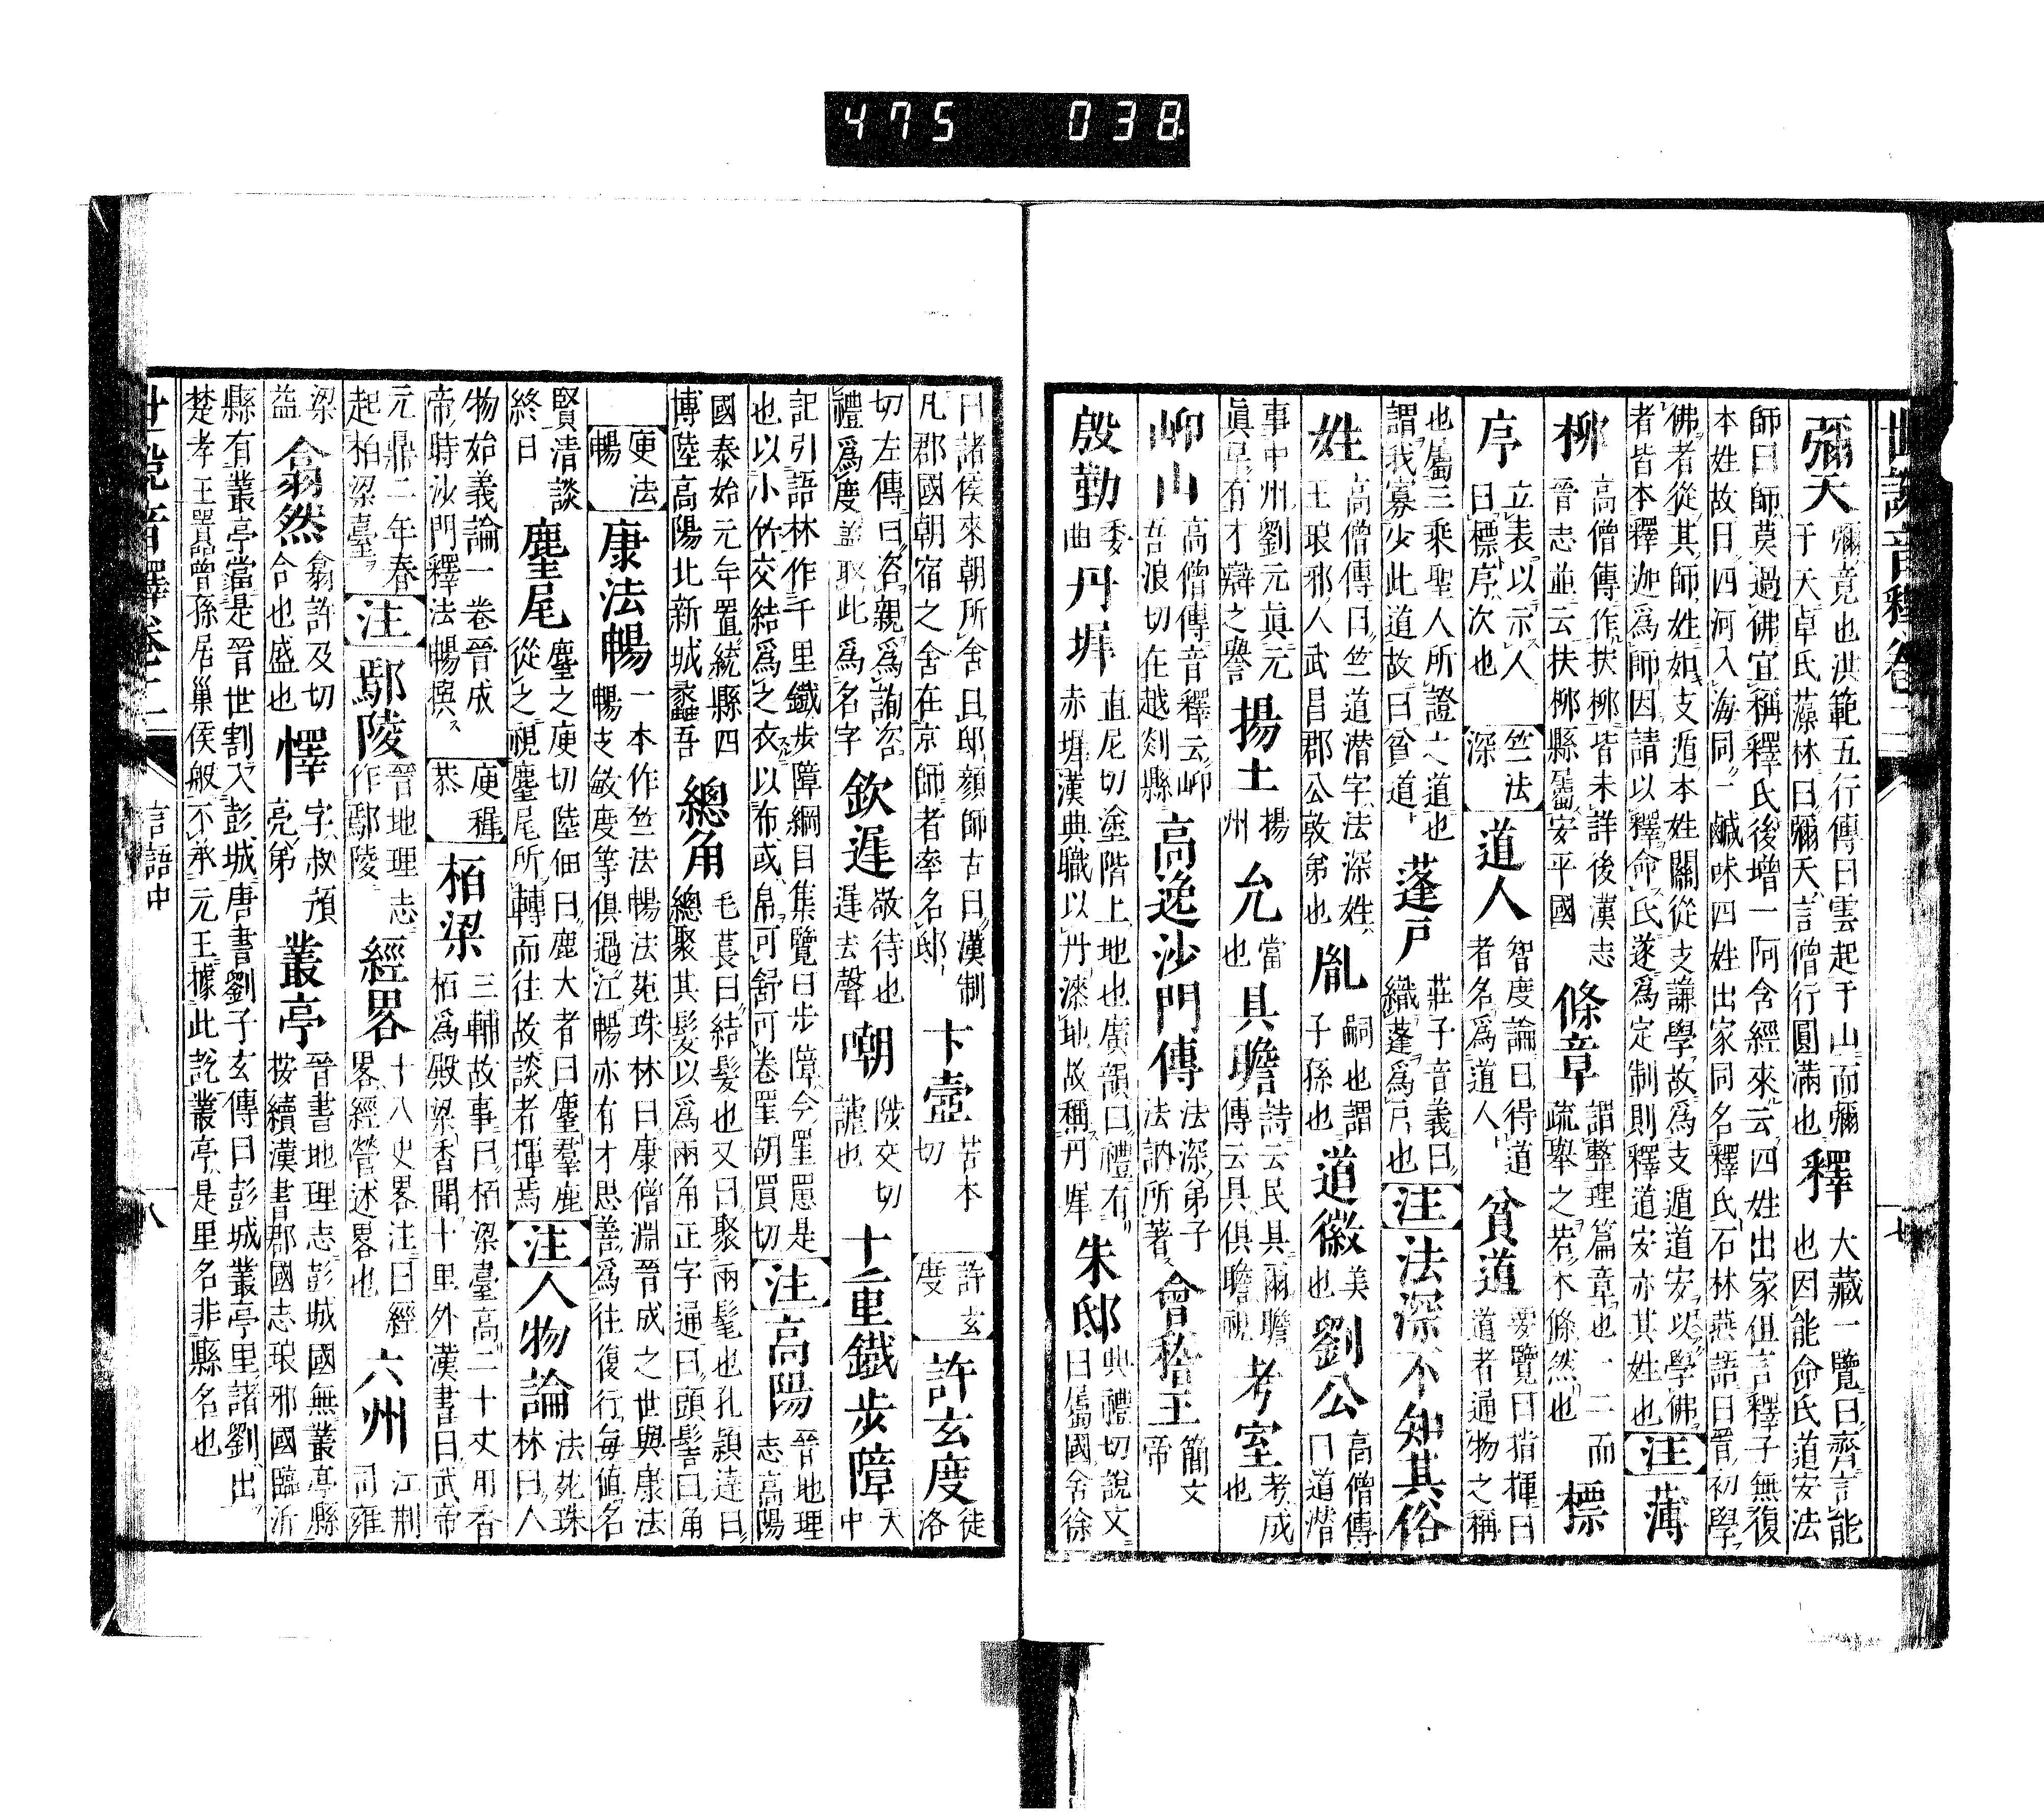 475 038
世說音釋卷二
彌天 彌竟也洪範五行傳曰雲起于山而彌于天卓氏藻林曰彌天言僧行圓滿也 釋 大藏一覽曰齊言能也因能命氏道安法
師曰師莫過佛宜稱釋氏後增一阿含經來云四姓出家但言釋子無復本姓故曰四河入海同一鹹味四姓出家同名釋氏石林燕語曰晋初學
佛者從其師姓如支遁本姓關從支謙學故爲支遁道安以學佛者皆本釋迦爲師因請以釋命氏遂爲定制則釋道安亦其姓也 注 薄
柳 高僧傳作扶柳皆未詳後漢志晉志並云扶柳縣屬安平國 條章 謂整理篇章也一二而疏舉之若木條然也 標
序 立表以示人曰標序次也 竺法深 道人 智度論曰得道者名爲道人 貧道 要覽曰指揮曰道者通物之稱
也屬三乘聖人所證之道也謂我寡少此道故曰貧道 蓬戸 莊子音義曰織蓬爲戸也 注 法深不知其俗
姓 高僧傳曰竺道潛字法深姓王琅邪人武昌郡公敦弟也 胤 嗣也謂子孫也 道徽 美也 劉公 高僧傳曰道潛
事中州劉元真元眞早有才辯之譽 揚土 揚州 允 當也 具瞻 詩云民具爾瞻傳云具俱瞻視 考室 考成也
岇山 高僧傳音釋云岇吾浪切在越剡縣 高逸沙門傳 法深弟子法訥所著 會稽王 簡文帝
殷勤 委曲 丹墀 直尼切塗階上地也廣韻曰禮有赤墀漢典職以丹漆地故稱丹墀 朱邸 典禮切說文曰屬國舍徐
曰諸侯來朝所舍且邸顔師古曰漢制凡郡國朝宿之舍在京師者率名邸 卞壼 苦本切 許玄度 許玄度 徒洛
切左傳曰咨親爲詢咨禮爲度蓋取此爲名字 欽遲 敬待也遲去聲 嘲 陟交切謔也 十重鐵步障 天中
記引語林作千里鐵步障綱目集覽曰步障今罣罳是也以小竹交結爲之衣以布或帛可舒可卷罣胡買切 注 高陽 晉地理志高陽
國泰始元年置統縣四博陸高陽北新城蠡吾 總角 毛萇曰結髮也又曰聚兩髦也孔穎達曰總聚其髮以爲兩角正字通曰頭髻曰角
庾法暢 康法暢 一本作竺法暢法苑珠林曰康僧淵晉成之世與康法暢支敏度等俱過江暢亦有才思善爲往復行每値名
賢清談終日 麈尾 麈之庾切陸佃曰鹿大者曰麈羣鹿從之視麈尾所轉而往故談者揮焉 注 人物論 法苑珠林曰人
物始義論一卷晉成帝時沙門釋法暢撰 庾穉恭 栢梁 三輔故事曰栢梁臺高二十丈用香栢爲殿梁香聞十里外漢書曰武帝
元鼎二年春起柏梁臺 注 鄢陵 晉地理志作鄢陵 經畧 十八史畧注曰經畧經營述畧也 六州 江荆司雍
梁益 翕然 翕許及切合也盛也 懌 字叔預亮弟 叢亭 晉書地理志彭城國無叢亭縣按續漢書郡國志琅邪國臨沂
縣有叢亭當是晉世割入彭城唐書劉子玄傳曰彭城叢亭里諸劉出楚孝王囂曾孫居巢侯般不承元王據此說叢亭是里名非縣名也
世說音釋卷二 言語中 八